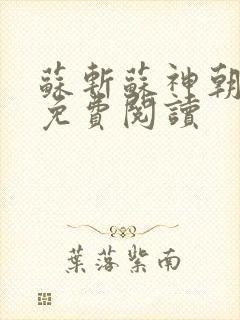 蘇斬蘇神朝
免費閱讀
葉落紫南